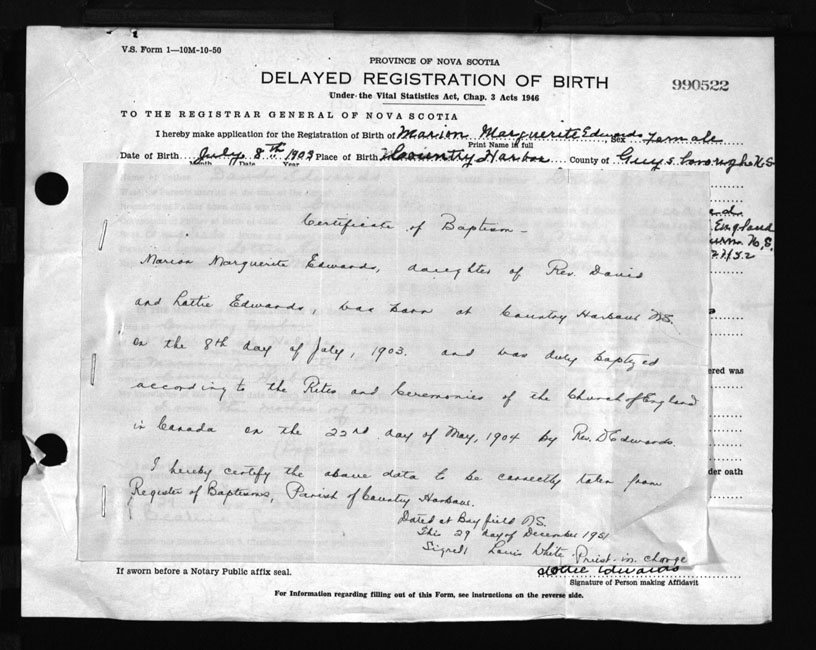 V.S. Form 1—10M-10-50
PROVINCE OF NOVA SCOTIA
DELAYED REGISTRATION OF BIRTH
990522
Under the Vital Statistics Act, Chap. 3 Acts 1946
TO THE REGISTRAR GENERAL OF NOVA SCOTIA
I hereby make application for the Registration of Birth of Marion Marguerite Edwards, Sex Female
Print Name in full
Date of Birth July 8th 1903 Place of Birth Country Harbor County of Guysborough N.S.
Month Date Year
England
N.S.
Certificate of Baptism -
Marion Marguerite Edwards, daughter of Rev. David
and Lottie Edwards, was born at Country Harbour N.S.
on the 8th day of July, 1903. and was duly baptized
according to the Rites and Ceremonies of the Church of England
in Canada on the 22nd day of May, 1904 by Rev. D Edwards.
I hereby certify the above data to be correctly taken from
Register of Baptisms, Parish of Country Harbour.
Dated at Bayfield N.S.
This 29 day of December 1951
Signed Louis White Priest-in-charge
ered was
der oath
Lottie Edwards
If sworn before a Notary Public affix seal.
Signature of Person making Affidavit
For Information regarding filling out of this Form, see instructions on the reverse side.